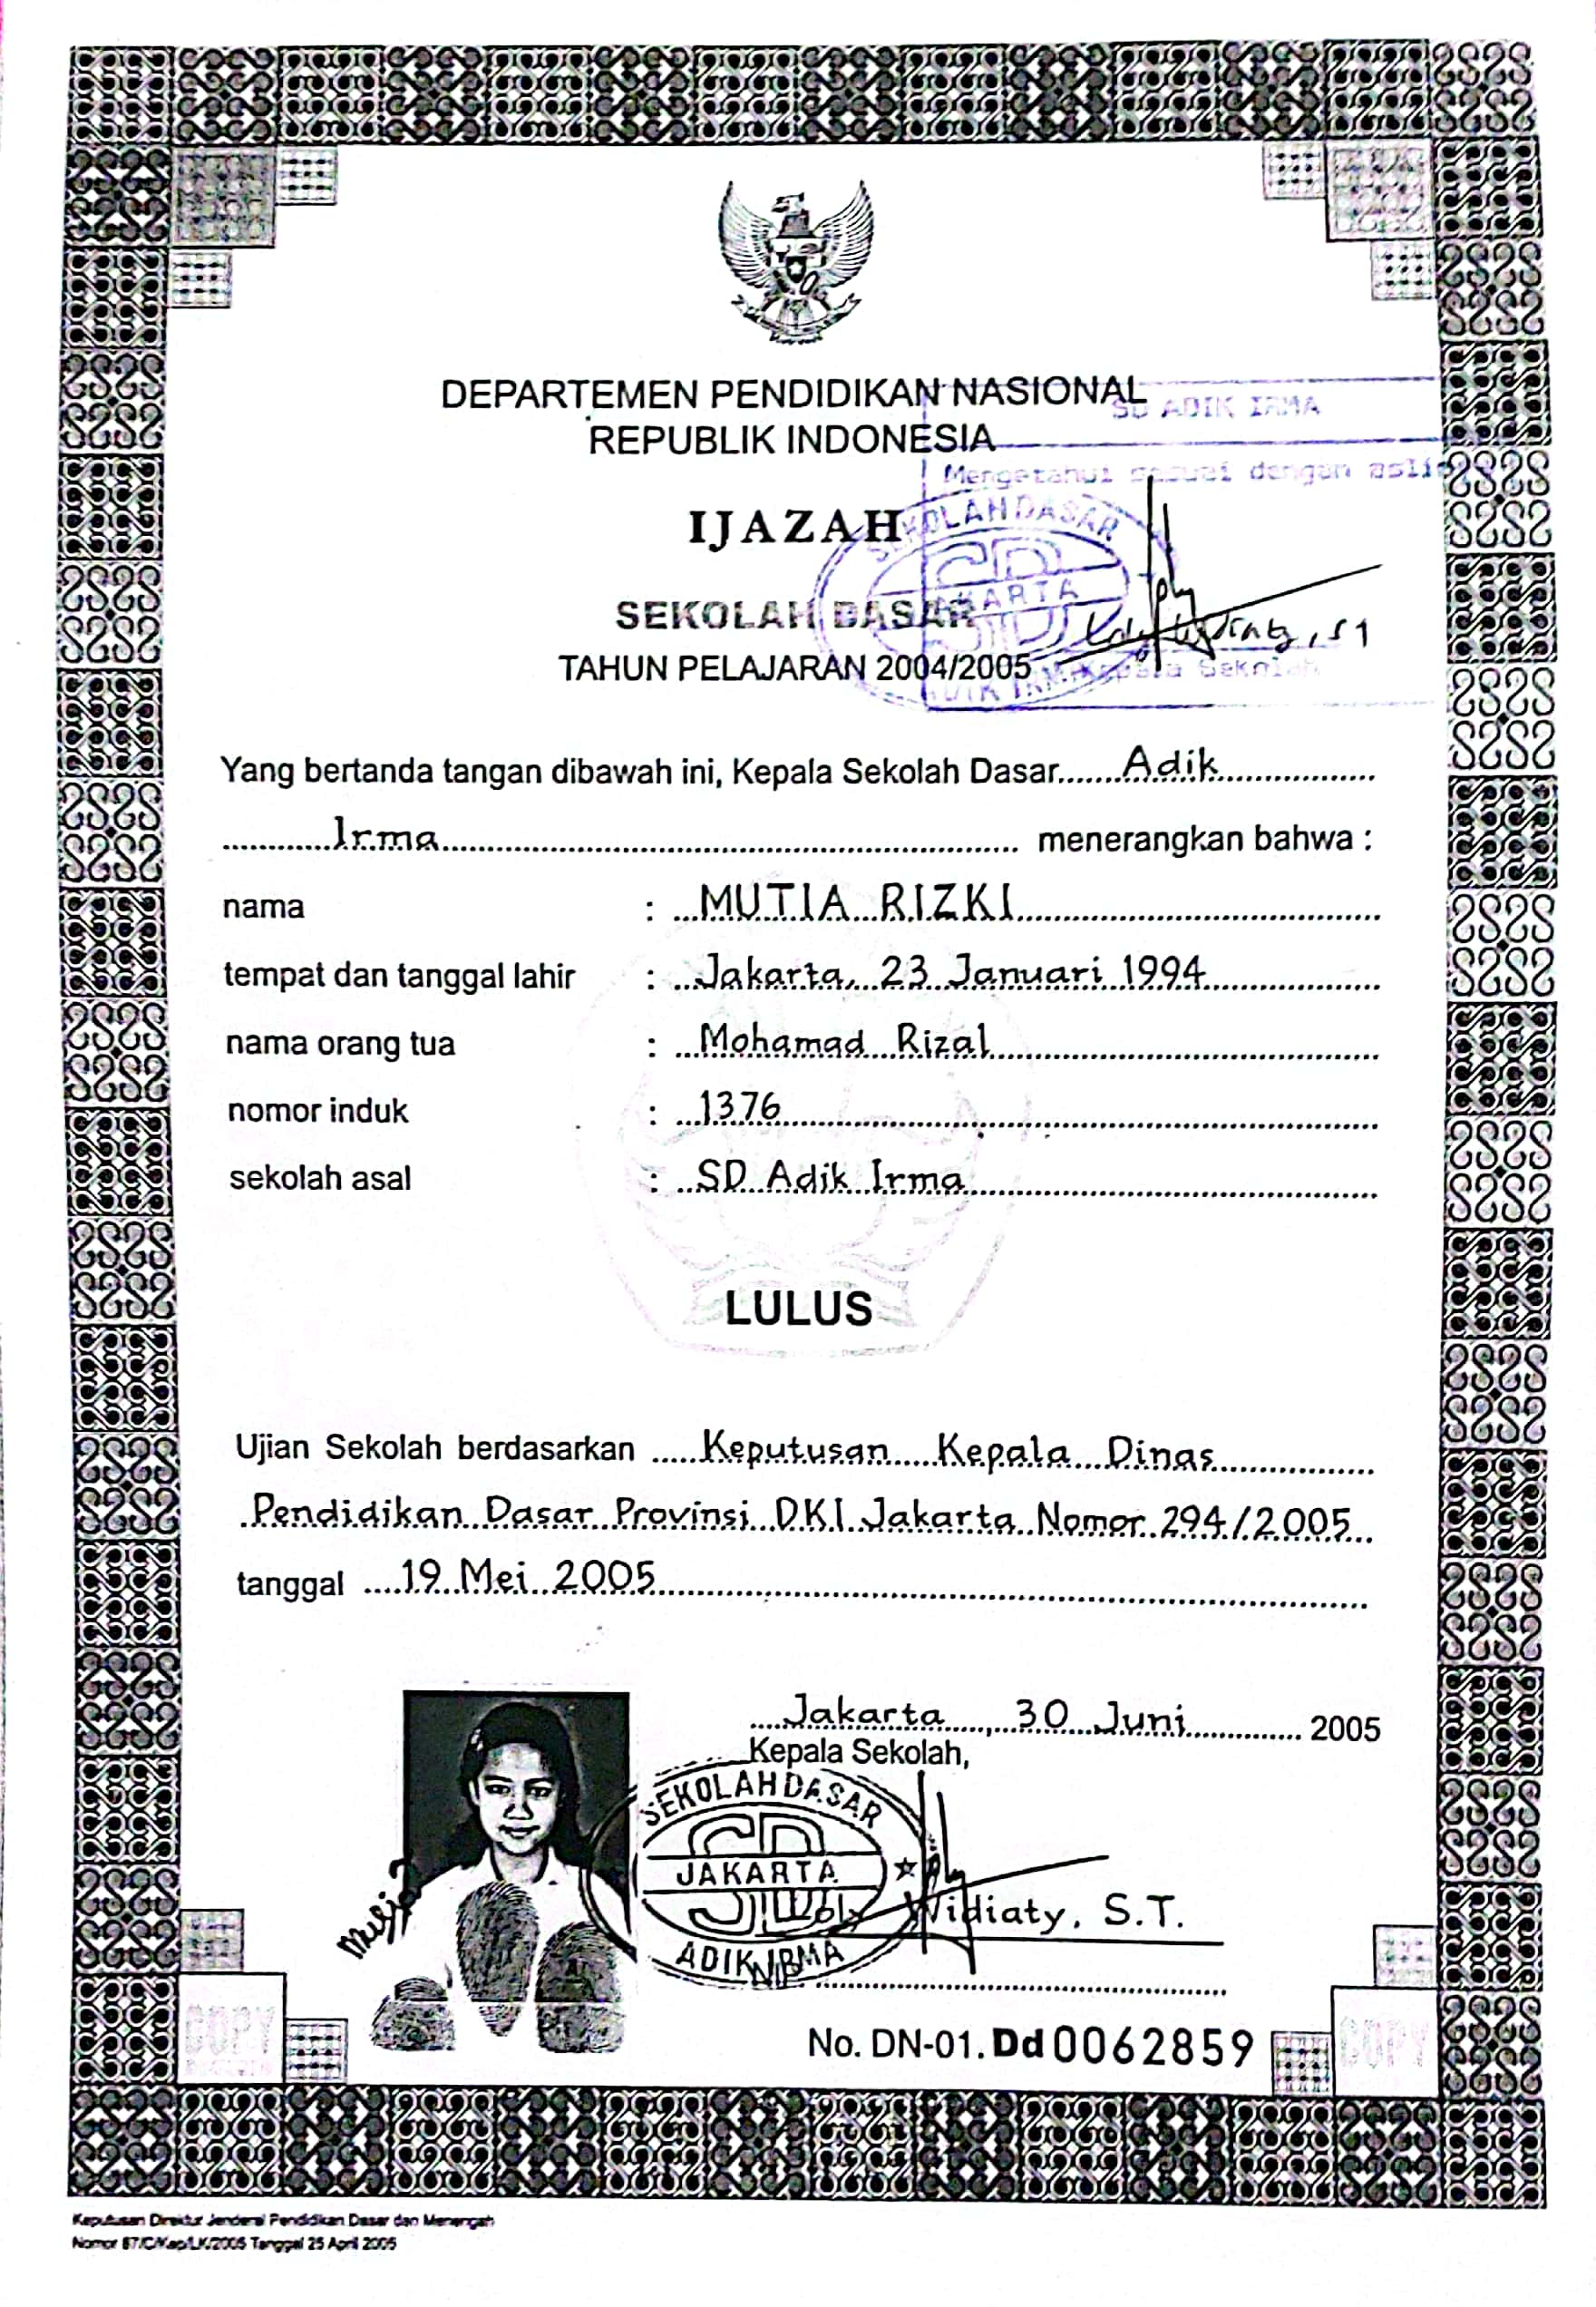 DEPARTEMEN PENDIDIKAN NASIONAL
REPUBLIK INDONESIA
SD ADIK IRMA
Mengetahui sesuai dengan asli
IJAZAH
SEKOLAH DASAR
SD
JAKARTA
ADIK IRMA
Kepala Sekolah
SEKOLAH DASAR
TAHUN PELAJARAN 2004/2005
Yang bertanda tangan dibawah ini, Kepala Sekolah Dasar.......Adik
Irma menerangkan bahwa :
nama : MUTIA RIZKI
tempat dan tanggal lahir : Jakarta, 23 Januari 1994
nama orang tua : Mohamad Rizal
nomor induk : 1376
sekolah asal : SD Adik Irma
LULUS
Ujian Sekolah berdasarkan Keputusan Kepala Dinas
Pendidikan Dasar Provinsi DKI Jakarta Nomor 294/2005
tanggal 19 Mei 2005
Jakarta, 30 Juni 2005
Kepala Sekolah,
SEKOLAH DASAR
SD
JAKARTA
ADIK IRMA
Widiaty, S.T.
NIP
No. DN-01. Dd 0062859
COPY
COPY
Keputusan Direktur Jenderal Pendidikan Dasar dan Menengah
Nomor 87/C/Kep/LK/2005 Tanggal 25 April 2005